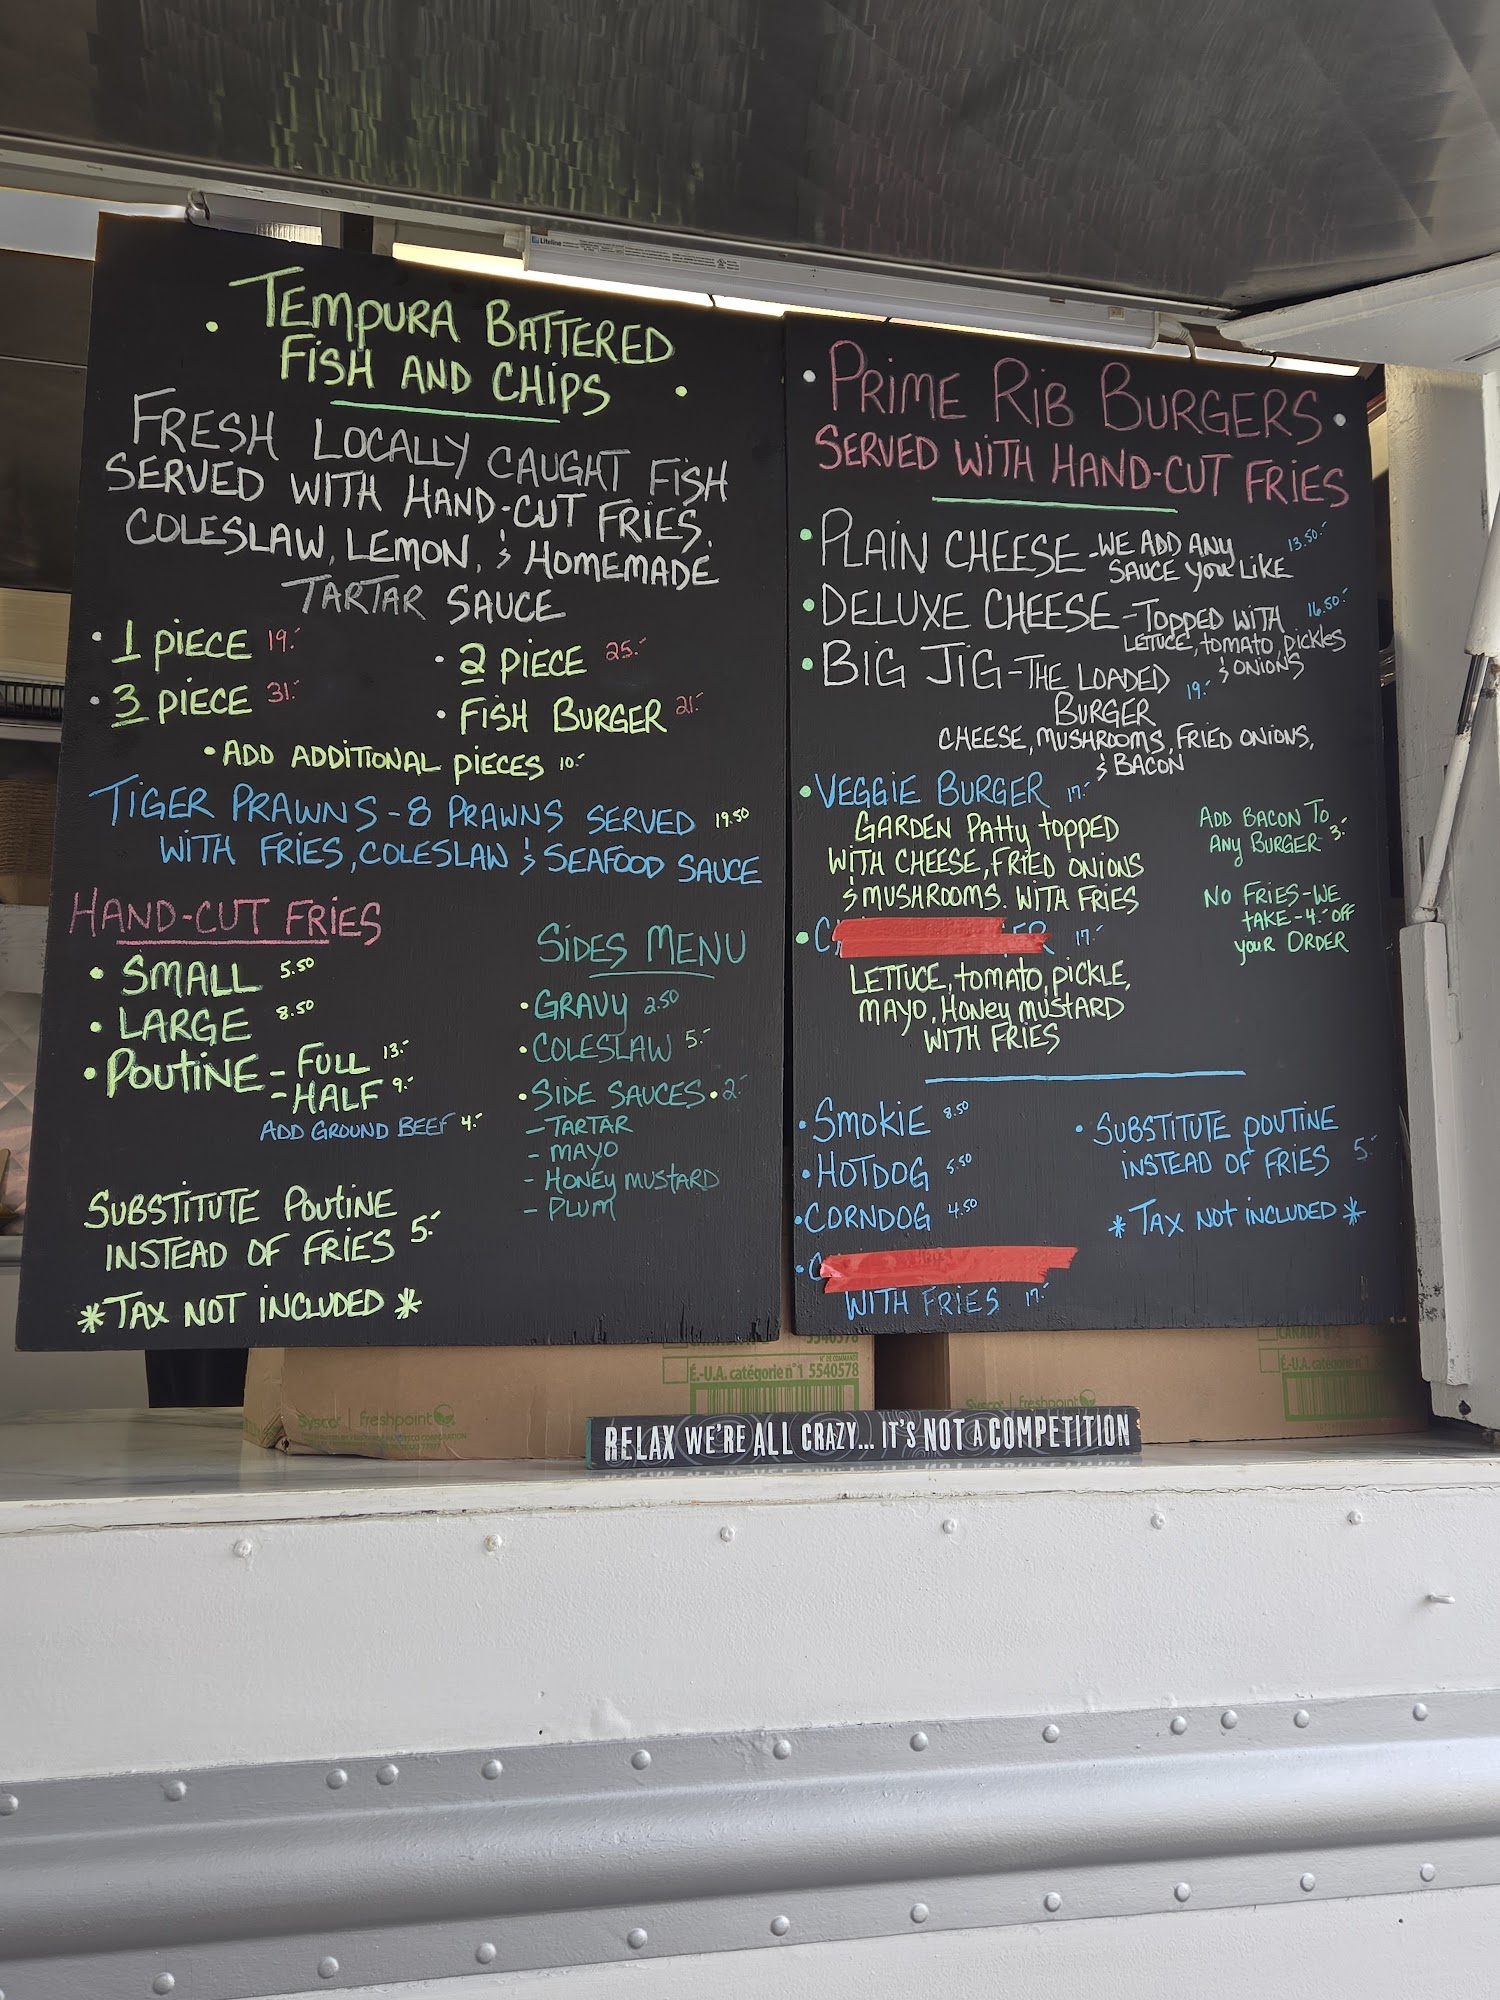 TEMPURA BATTERED
FISH AND CHIPS
FRESH LOCALLY CAUGHT FISH
SERVED WITH HAND-CUT FRIES.
COLESLAW, LEMON, & HOMEMADE
TARTAR SAUCE
• 1 PIECE 19.-
• 2 PIECE 25.-
• 3 PIECE 31.-
• FISH BURGER 21.-
• ADD ADDITIONAL PIECES 10.-
TIGER PRAWNS - 8 PRAWNS SERVED 19.50
WITH FRIES, COLESLAW & SEAFOOD SAUCE
HAND-CUT FRIES
• SMALL 5.50
• LARGE 8.50
• POUTINE - FULL 13.-
- HALF 9.-
ADD GROUND BEEF 4.-
SUBSTITUTE POUTINE
INSTEAD OF FRIES 5.-
* TAX NOT INCLUDED *
SIDES MENU
• GRAVY 2.50
• COLESLAW 5.-
• SIDE SAUCES • 2.-
- TARTAR
- MAYO
- HONEY MUSTARD
- PLUM
• PRIME RIB BURGERS •
SERVED WITH HAND-CUT FRIES
• PLAIN CHEESE - WE ADD ANY 13.50.-
SAUCE YOU LIKE
• DELUXE CHEESE - TOPPED WITH 16.50.-
LETTUCE, TOMATO, PICKLES
& ONIONS
• BIG JIG - THE LOADED 19.-
BURGER
CHEESE, MUSHROOMS, FRIED ONIONS,
& BACON
• VEGGIE BURGER 17.-
GARDEN PATTY TOPPED
WITH CHEESE, FRIED ONIONS
& MUSHROOMS. WITH FRIES
ADD BACON TO
ANY BURGER 3.-
NO FRIES - WE
TAKE - 4.- OFF
YOUR ORDER
• C ER 17.-
LETTUCE, TOMATO, PICKLE,
MAYO, HONEY MUSTARD
WITH FRIES
• SMOKIE 8.50
• HOTDOG 5.50
• CORNDOG 4.50
• C
WITH FRIES 17.-
• SUBSTITUTE POUTINE
INSTEAD OF FRIES 5.-
* TAX NOT INCLUDED *
Lifeline
É.-U.A. catégorie n°1 5540578
Sysco | freshpoint
Sysco | freshpoint
É.-U.A. catégorie n.1
RELAX WE'RE ALL CRAZY... IT'S NOT A COMPETITION